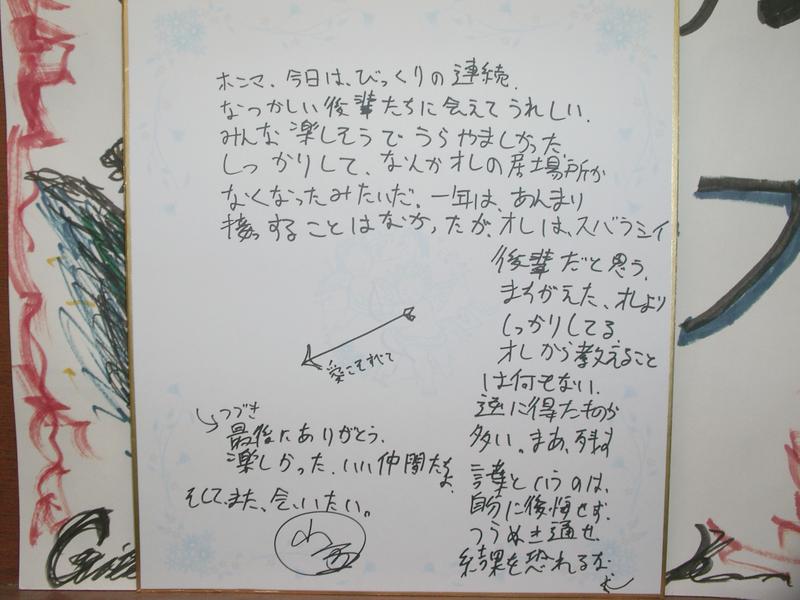 ホンマ、今日は、びっくりの連続.
なつかしい後輩たちに会えてうれしい.
みんな楽しそうでうらやましかった.
しっかりして、なんかオレの居場所が
なくなったみたいだ. 一年は、あんまり
接っすることはなかったが、オレは、スバラシイ
後輩だと思う.
まちがえた、オレより
しっかりしてる.
オレから教えること
は何もない.
逆に得たものが
多い。まあ、残す
言葉というのは、
自分に後悔せず.
つらぬき通せ
結果を恐れるな.
愛こそれて
つづき
最後にありがとう.
楽しかった. いい仲間たちよ.
そして、また、会いたい。
山西